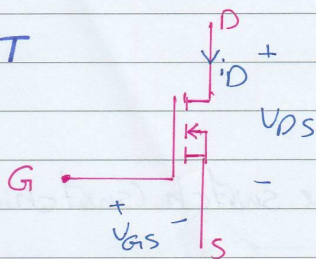 T
D
iD
+
VDS
-
G
+
VGS
-
S